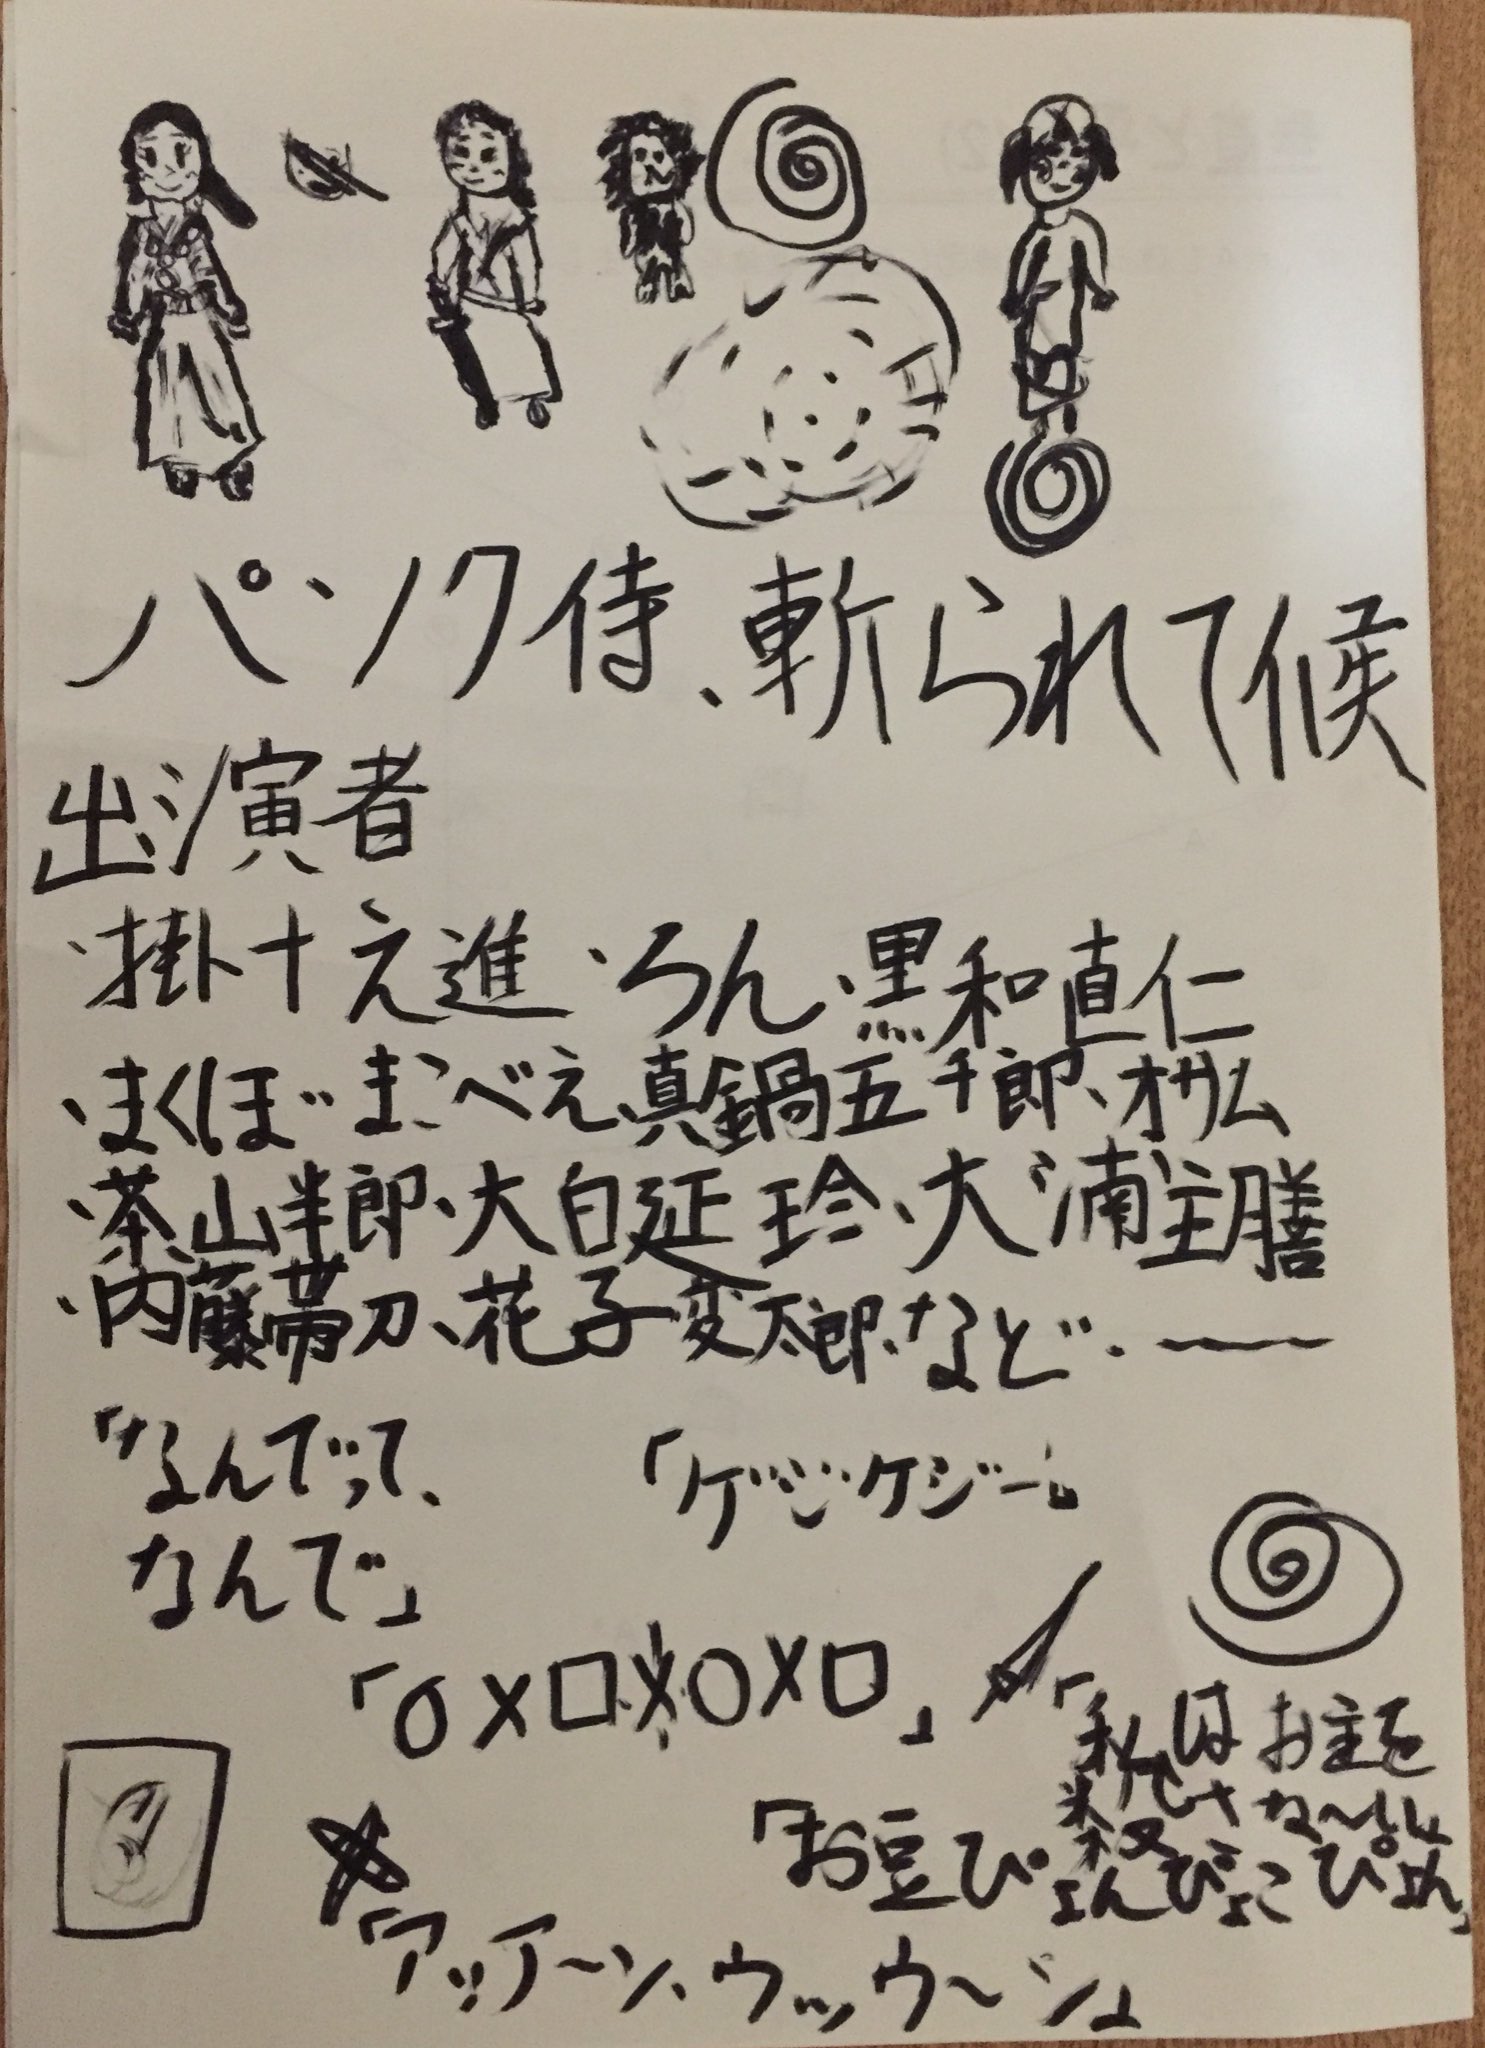 パンク侍、斬られて候
出演者
・掛十え進・ろん、黒和直仁
・まくぼ・まごべえ、真鍋五千郎、オサム
・茶山半郎、大臼延珍、大浦主膳
・内藤帯刀、花子変太郎、など・
「なんでって、
なんで」
「ゲジ・ケジー」
「〇×□×〇×□」
「私はお主を
殺さね〜
「お豆ぴょんぴょこぴょん」
「アッアーン、ウッウ〜ン」